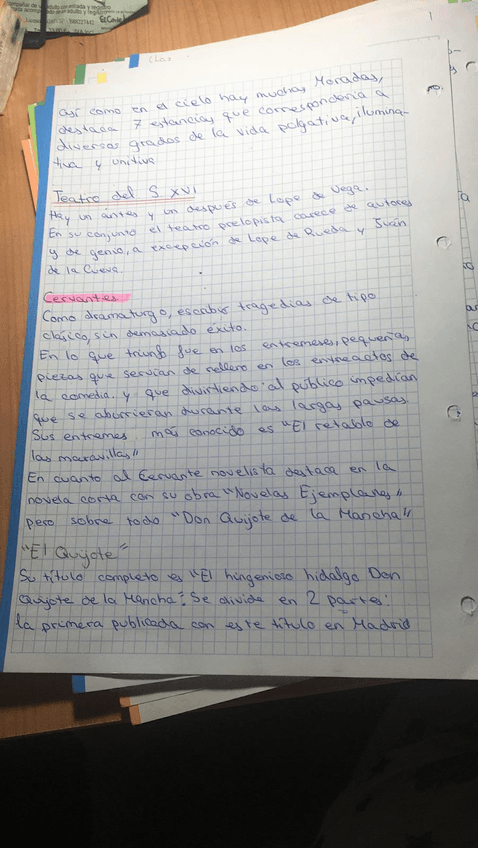 así como en el cielo hay muchas Moradas,
destaca 7 estancias que correspondería a
diversos grados de la vida pulgativa, ilumina-
tiva y unitiva
Teatro del S XVI
Hay un antes y un después de Lope de Vega.
En su conjunto el teatro prelopista carece de autores
y de genio, a excepción de Lope de Rueda y Juan
de la Cueva.
Cervantes
Como dramaturgo, escribió tragedias de tipo
clásico, sin demasiado éxito.
En lo que triunfó fue en los entremeses, pequeñas
piezas que servían de relleno en los entreactos de
la comedia. y que divirtiendo al público impedían
que se aburrieran durante las largas pausas
Sus entremes más conocido es "El retablo de
las maravillas"
En cuanto al Cervante novelista destaca en la
novela corta con su obra "Novelas Ejemplares"
pero sobre todo "Don Quijote de la Mancha"
"El Quijote"
Su título completo es "El hingenioso hidalgo Don
Quijote de la Mancha". Se divide en 2 partes:
la primera publicada con este título en Madrid